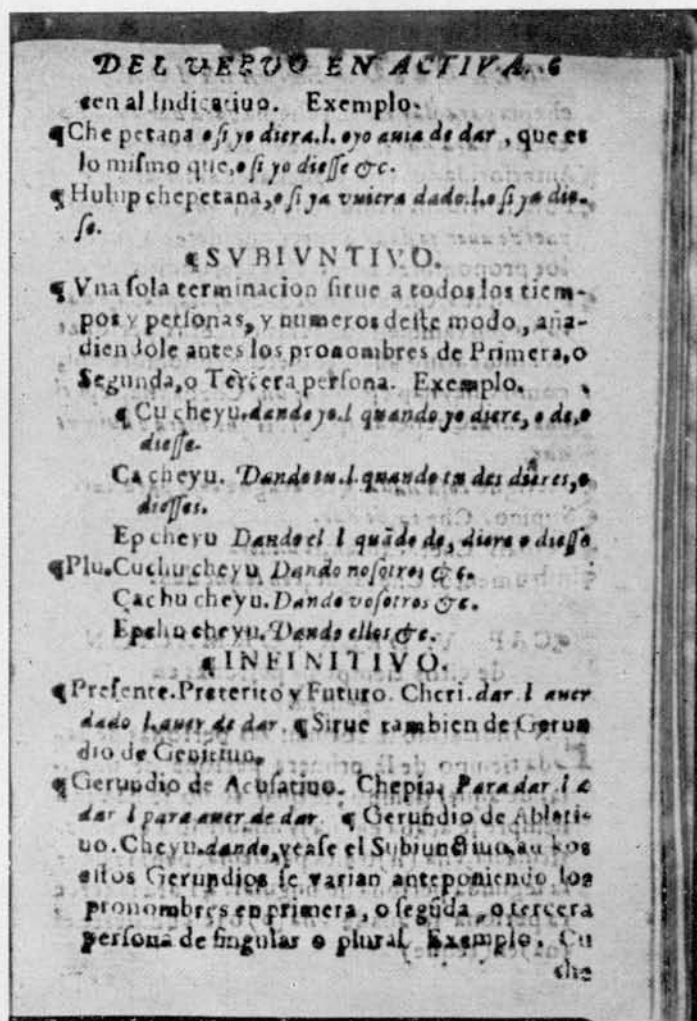 DEL VERVO EN ACTIVA. 6
cen al Indicatiuo. Exemplo.
¶Che petana o si yo diera.l. o yo auia de dar, que es
lo mismo que, o si yo diesse &c.
¶Hulup chepetana, o si ya vuiera dado.l.o si ya die-
se.
¶SVBIVNTIVO.
¶Vna sola terminacion sirue a todos los tiem-
pos y personas, y numeros deste modo, aña-
diendole antes los pronombres de Primera, o
Segunda, o Tercera persona. Exemplo.
¶Cu cheyu. dando yo.l quando yo diere, o de, o
diesse.
Ca cheyu. Dando tu.l. quando tu des diêres, o
diesses.
Ep cheyu Dando el l quãdo de, diere o diesse
¶Plu. Cuchu cheyu Dando nosotros &c.
Cachu cheyu. Dando vosotros &c.
Epchu cheyu. Dando ellos &c.
¶INFINITIVO.
¶Presente. Preterito y Futuro. Cheri. dar l auer
dado l. auer de dar. ¶Sirue tambien de Gerun
dio de Genitiuo.
¶Gerundio de Acusatiuo. Chepia. Para dar l a
dar l para auer de dar. ¶Gerundio de Ablati-
uo. Cheyu. dando, vease el Subiunctiuo,
estos Gerundios se varian anteponiendo los
pronombres en primera, o segũda, o tercera
persona de singular o plural. Exemplo. Cu
che